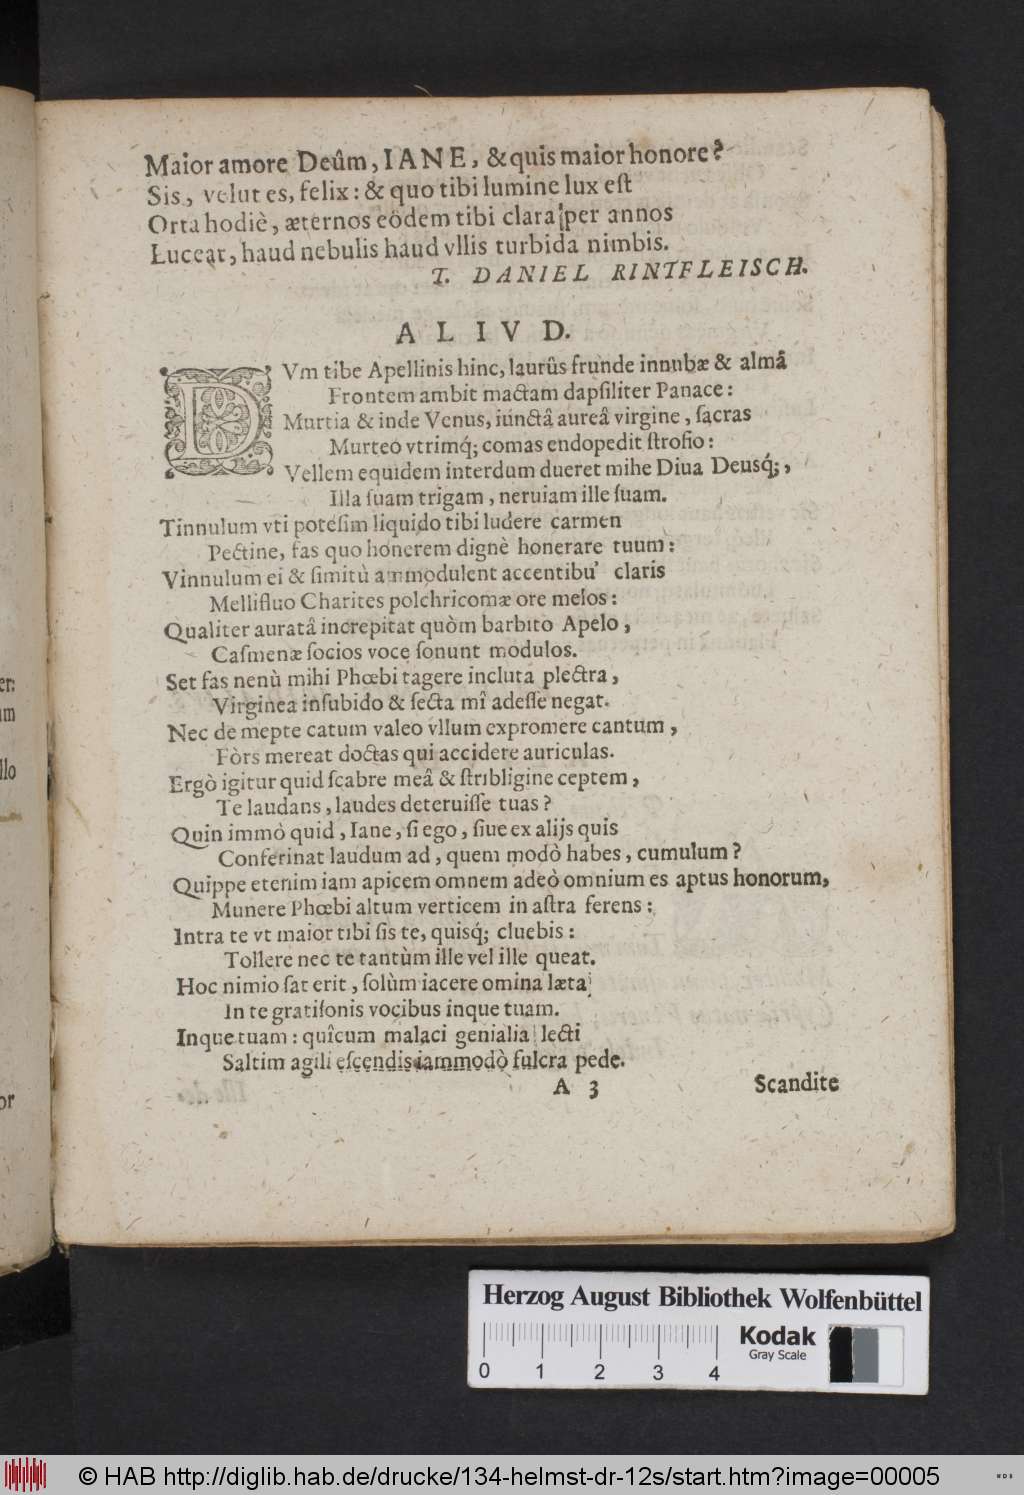 Maior amore Deûm, IANE, & quis maior honore?
Sis, velut es, felix: & quo tibi lumine lux eſt
Orta hodiè, æternos eödem tibi clara per annos
Luceat, haud nebulis haud vllis turbida nimbis.
T. DANIEL RINTFLEISCH.
ALIVD.
DVm tibe Apellinis hinc, laurûs frunde innubæ & almâ
Frontem ambit mactam dapſiliter Panace:
Murtia & inde Venus, iunctâ aureâ virgine, ſacras
Murteo vtrimq́; comas endopedit ſtroſio:
Vellem equidem interdum dueret mihe Diua Deusq́;,
Illa ſuam trigam, neruiam ille ſuam.
Tinnulum vti poteſim liquido tibi ludere carmen
Pectine, fas quo honerem dignè honerare tuum:
Vinnulum ei & ſimitù ammodulent accentibu' claris
Mellifluo Charites polchricomæ ore melos:
Qualiter auratâ increpitat quòm barbito Apelo,
Caſmenæ ſocios voce ſonunt modulos.
Set fas nenù mihi Phœbi tagere incluta plectra,
Virginea inſubido & ſecta mî adeſſe negat.
Nec de mepte catum valeo vllum expromere cantum,
Fòrs mereat doctas qui accidere auriculas.
Ergò igitur quid ſcabre meâ & ſtribligine ceptem,
Te laudans, laudes deteruiſſe tuas?
Quin immò quid, Iane, ſi ego, ſiue ex alijs quis
Conferinat laudum ad, quem modò habes, cumulum?
Quippe etenim iam apicem omnem adeò omnium es aptus honorum,
Munere Phœbi altum verticem in aſtra ferens:
Intra te vt maior tibi ſis te, quisq́; cluebis:
Tollere nec te tantùm ille vel ille queat.
Hoc nimio ſat erit, ſolùm iacere omina læta
In te gratiſonis vocibus inque tuam.
Inque tuam: quîcum malaci genialia lecti
Saltim agili eſcendis iammodò fulcra pede.
A 3 Scandite
er:
um
llo
or
Herzog August Bibliothek Wolfenbüttel
Kodak
Gray Scale
0 1 2 3 4
© HAB http://diglib.hab.de/drucke/134-helmst-dr-12s/start.htm?image=00005